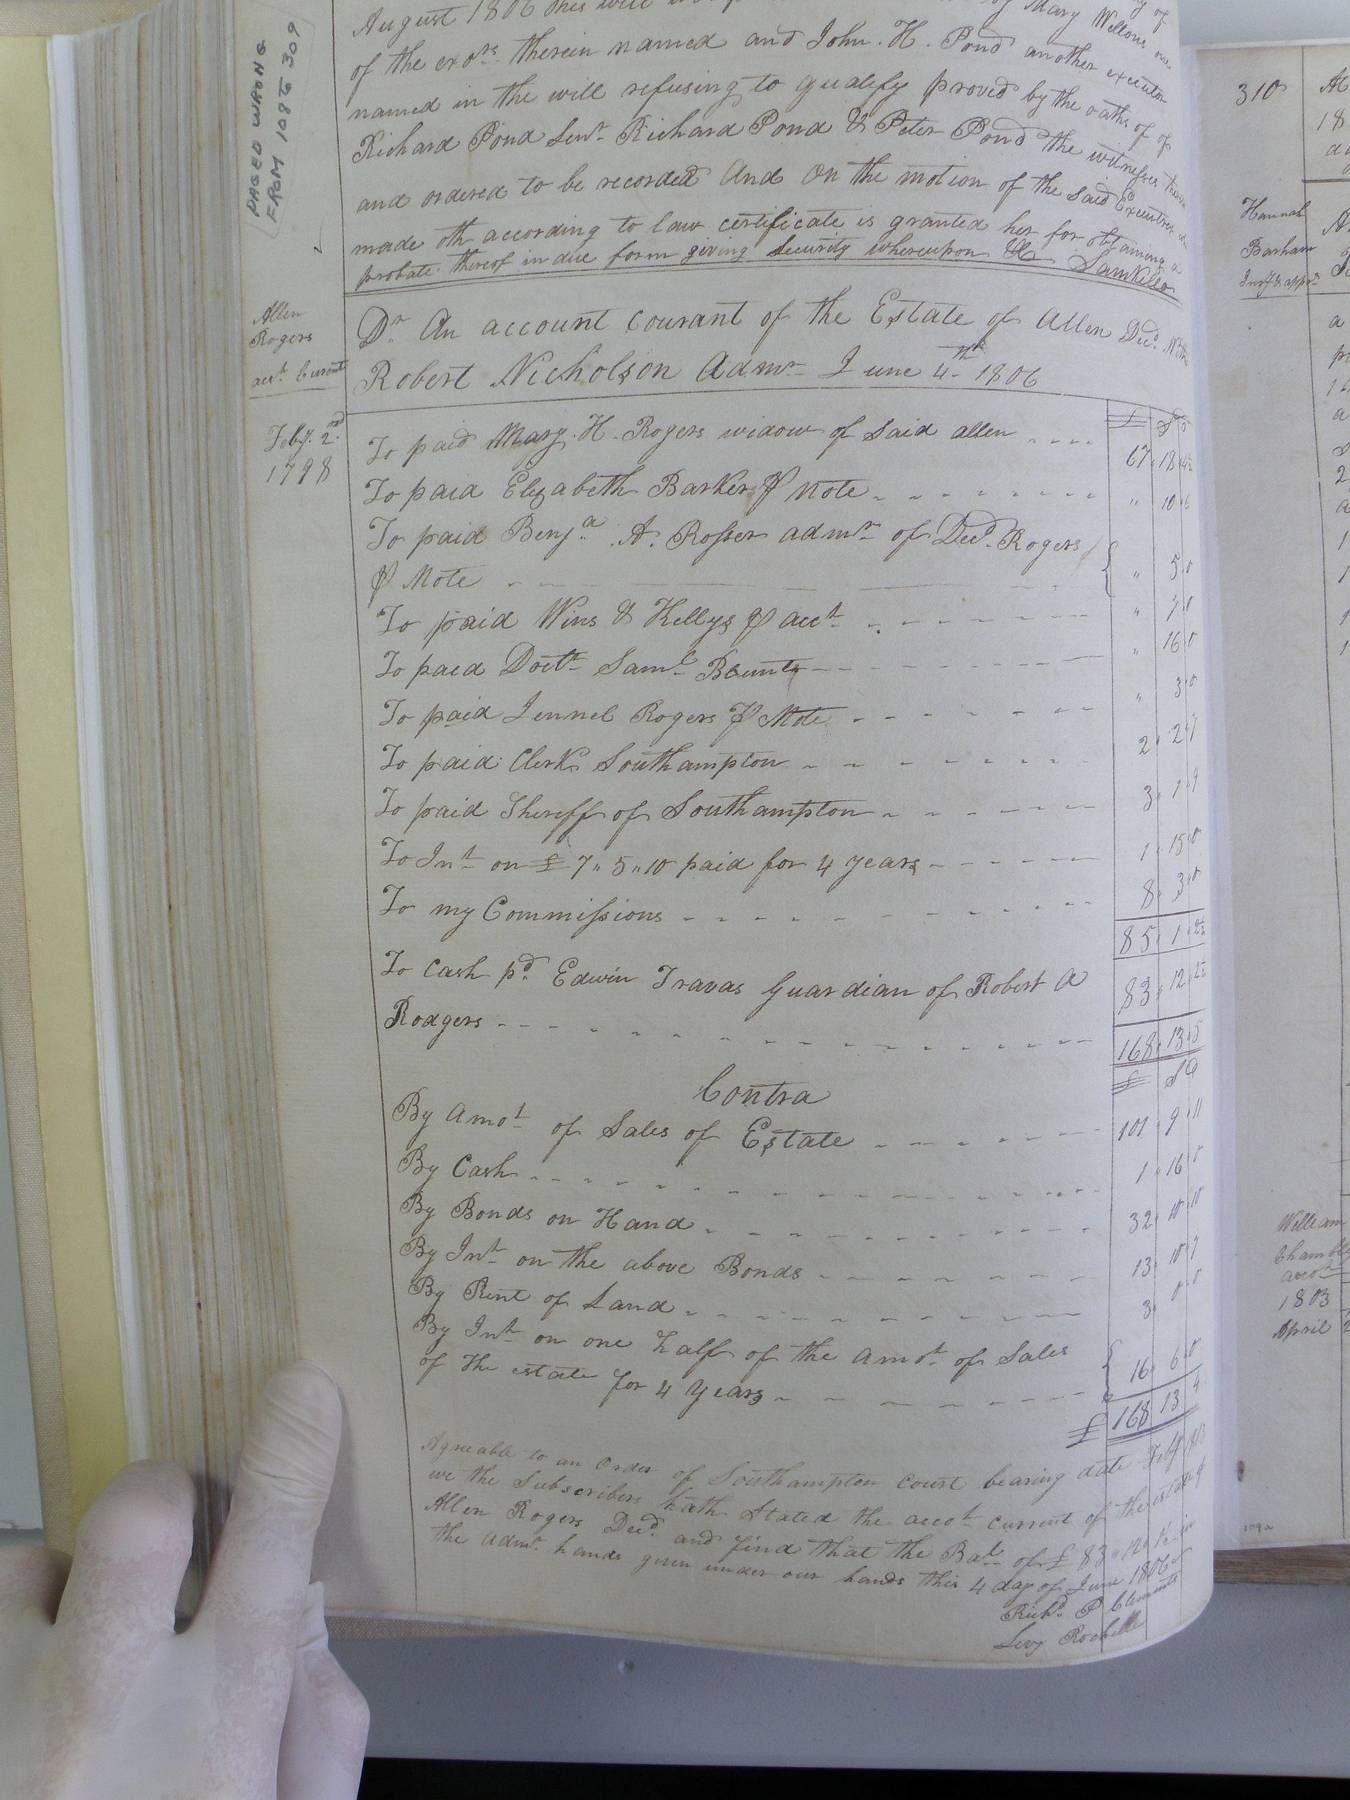 PAGED WRONG
FROM 108 TO 309
August 1806 this will
of Mary Wellons one
of the exors. therein named and John. H. Pond another executor
named in the will refusing to qualify proved by the oaths of
Richard Pond Senr. Richard Pond & Peter Pond the witnesses
and ordered to be recorded And On the motion of the said Executrix
made oth according to law certificate is granted her for obtaining a
probate thereof in due form giving security whereupon &c
Allen
Rogers
acct. Current
Dr. An account Courant of the Estate of Allen Decd.
Robert Nicholson Admr. June 4th 1806
Feby. 2nd
1798
£ S
To paid Mary. H. Rogers widow of Said allen 67 18 4½
To paid Elizabeth Barker ⅌ Note " 10 6
To paid Benja. A. Rosser admr. of Decd. Rogers
⅌ Note " 5 0
To paid Wins & Kellys ⅌ acct. " 7 0
To paid Doctr. Saml. Blunt " 16 0
To paid Lennel Rogers ⅌ Note " 3 0
To paid Clerk Southampton 2 2 7
To paid Sheriff of Southampton 3 1 9
To Int. on £ 7 " 5 " 10 paid for 4 years 1 15 0
To my Commissions 8 3 0
85 1 2½
To Cash pd. Edwin Travas Guardian of Robert A
Rodgers 83 12 2½
168 13 5
Contra
£ S D
By Amot. of Sales of Estate 101 9 11
By Cash 1 16 0
By Bonds on Hand 32 10 10
By Int. on the above Bonds 13 10 7
By Rent of Land 3 0 0
By Int. on one half of the amot. of Sales
of the estate for 4 years 16 6 0
£ 168 13 4
Agreable to an Order of Southampton Court bearing date Feby
we the Subscribers hath Stated the accot. current of the estate of
Allen Rogers Decd. and find that the Bale. of £ 83 " 12 " in
the Admr. hands given under our hands this 4 day of June 1806
Richd. P Clements
Levy Rochelle
310
18
Hannah
Barham
William
accot.
1803
April 2
109a